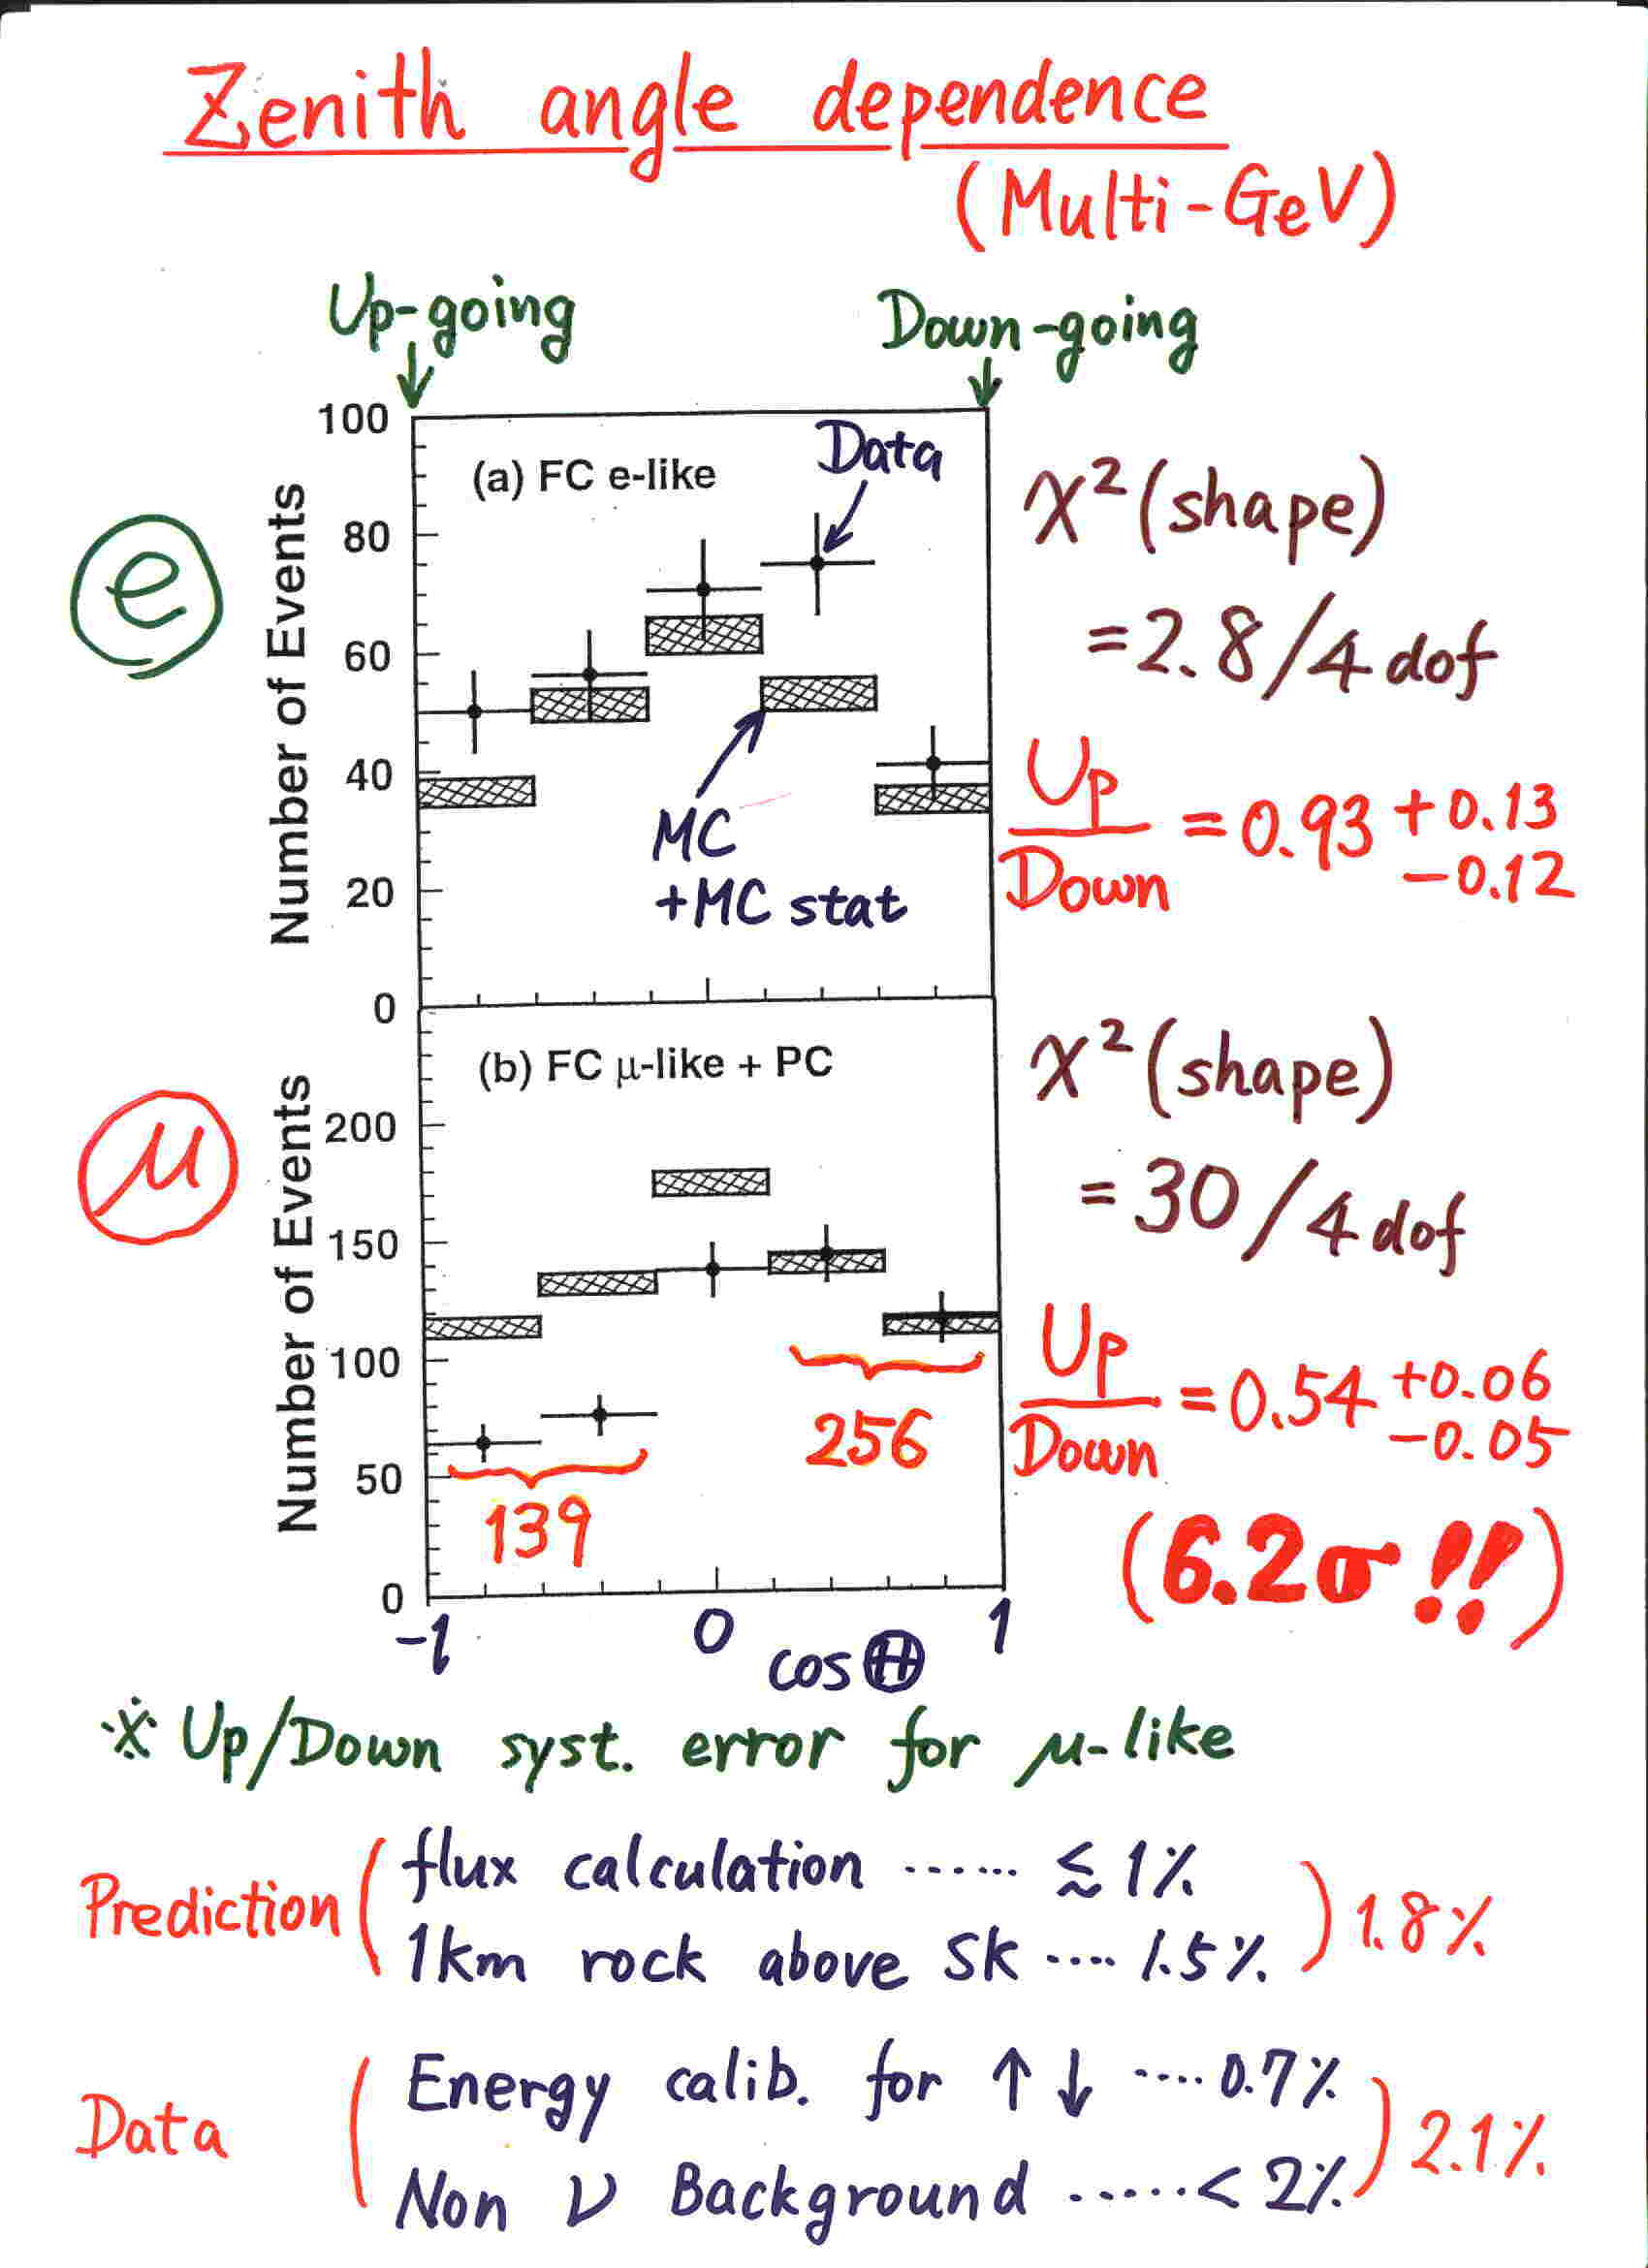 Zenith angle dependence
(Multi-GeV)
Up-going
Down-going
100
80
60
40
20
0
Number of Events
(a) FC e-like
Data
MC
+MC stat
e
χ²(shape)
=2.8/4 dof
Up
Down
=0.93 +0.13
−0.12
200
150
100
50
0
Number of Events
(b) FC μ-like + PC
139
256
μ
χ²(shape)
=30/4 dof
Up
Down
=0.54 +0.06
−0.05
(6.2σ!!)
-1
0
1
cosΘ
※ Up/Down syst. error for μ-like
Prediction
flux calculation ······ ≲ 1%
1km rock above SK ···· 1.5%
1.8%
Data
Energy calib. for ↑ ↓ ···· 0.7%
Non ν Background ······ < 2%
2.1%